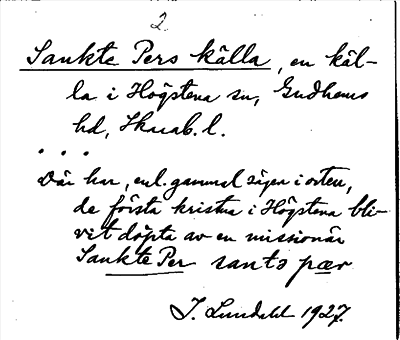 2.
Sankte Pers källa, en käl-
la i Högstena sn, Gudhems
hd, Skarab. l.
. . .
Där har, enl. gammal sägen i orten,
de första kristna i Högstena bli-
vit döpta av en missionär
Sankte Per santə pær
J. Lundahl 1927.